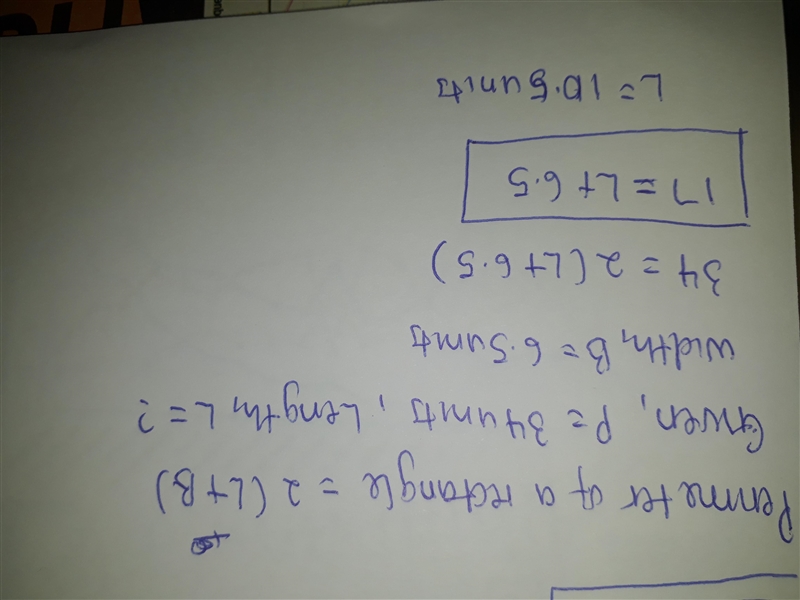 Perimeter of a rectangle = 2 (L+B)
Given, P = 34 units, Length, L = ?
Width, B = 6.5 units
34 = 2 (L+ 6.5)
17 = L+ 6.5
L = 10.5 units